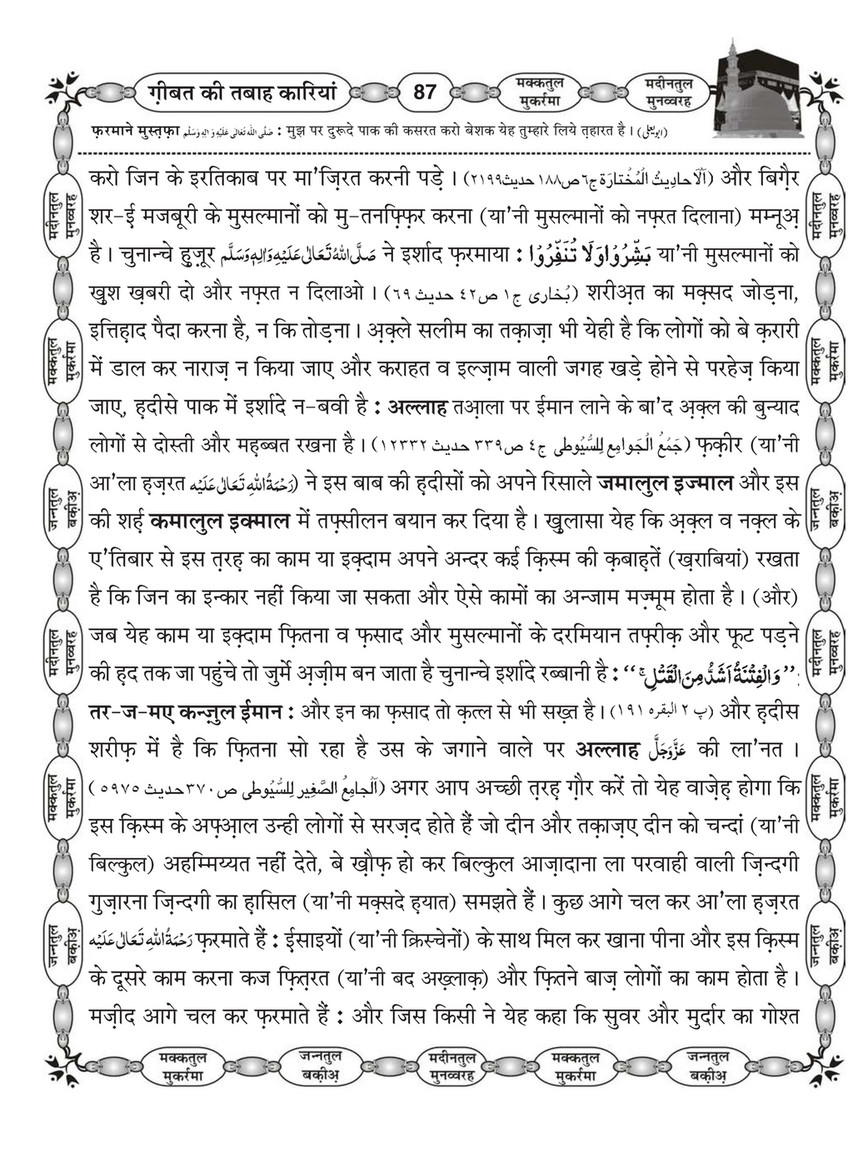 ग़ीबत की तबाह कारियां
87
मक्कतुल मुकर्रमा
मदीनतुल मुनव्वरह
फ़रमाने मुस्तफ़ा صَلَّی اللّٰہُ تَعَالٰی عَلَیْہِ وَاٰلِہٖ وَسَلَّم : मुझ पर दुरूदे पाक की कसरत करो बेशक येह तुम्हारे लिये त़हारत है । (ابو یعلی)
करो जिन के इरतिकाब पर मा'ज़िरत करनी पड़े । (اَلْاَحادِیثُ الْمُختارَۃ ج٦ ص١٨٨ حدیث ٢١٩٩) और बिग़ैर
शर-ई मजबूरी के मुसल्मानों को मु-तनफ़्फ़िर करना (या'नी मुसल्मानों को नफ़्रत दिलाना) मम्नूअ़
है । चुनान्चे हुज़ूर صَلَّی اللّٰہُ تَعَالٰی عَلَیْہِ وَاٰلِہٖ وَسَلَّم ने इर्शाद फ़रमाया : بَشِّرُوْا وَلَا تُنَفِّرُوْا या'नी मुसल्मानों को
ख़ुश ख़बरी दो और नफ़्रत न दिलाओ । (بُخاری ج١ ص٤٢ حدیث ٦٩) शरीअ़त का मक्सद जोड़ना,
इत्तिह़ाद पैदा करना है, न कि तोड़ना । अ़क़्ले सलीम का तक़ाज़ा भी येही है कि लोगों को बे क़रारी
में डाल कर नाराज़ न किया जाए और कराहत व इल्ज़ाम वाली जगह खड़े होने से परहेज़ किया
जाए, ह़दीसे पाक में इर्शादे न-बवी है : अल्लाह तआ़ला पर ईमान लाने के बा'द अ़क़्ल की बुन्याद
लोगों से दोस्ती और मह़ब्बत रखना है । (جَمْعُ الْجَوامِع لِلسُّیُوطی ج٤ ص٣٣٩ حدیث ١٢٣٣٢) फ़क़ीर (या'नी
आ'ला ह़ज़रत رَحْمَۃُ اللّٰہِ تَعَالٰی عَلَیْہ) ने इस बाब की ह़दीसों को अपने रिसाले जमालुल इज्माल और इस
की शर्ह़ कमालुल इक्माल में तफ़्सीलन बयान कर दिया है । ख़ुलासा येह कि अ़क़्ल व नक़्ल के
ए'तिबार से इस त़रह़ का काम या इक़्दाम अपने अन्दर कई क़िस्म की क़बाह़तें (ख़राबियां) रखता
है कि जिन का इन्कार नहीं किया जा सकता और ऐसे कामों का अन्जाम मज़्मूम होता है । (और)
जब येह काम या इक़्दाम फ़ितना व फ़साद और मुसल्मानों के दरमियान तफ़्रीक़ और फूट पड़ने
की ह़द तक जा पहुंचे तो जुर्मे अ़ज़ीम बन जाता है चुनान्चे इर्शादे रब्बानी है : “وَالْفِتْنَۃُ اَشَدُّ مِنَ الْقَتْلِ ۚ”
तर-ज-मए कन्ज़ुल ईमान : और इन का फ़साद तो क़त्ल से भी सख़्त है । (پ ٢ البقرہ ١٩١) और ह़दीस
शरीफ़ में है कि फ़ितना सो रहा है उस के जगाने वाले पर अल्लाह عَزَّوَجَلَّ की ला'नत ।
(اَلْجامِعُ الصَّغِیر لِلسُّیُوطی ص٣٧٠ حدیث ٥٩٧٥) अगर आप अच्छी त़रह़ ग़ौर करें तो येह वाज़ेह़ होगा कि
इस क़िस्म के अफ़्आ़ल उन्ही लोगों से सरज़द होते हैं जो दीन और तक़ाज़ए दीन को चन्दां (या'नी
बिल्कुल) अहम्मिय्यत नहीं देते, बे ख़ौफ़ हो कर बिल्कुल आज़ादाना ला परवाही वाली ज़िन्दगी
गुज़ारना ज़िन्दगी का ह़ासिल (या'नी मक़्सदे ह़यात) समझते हैं । कुछ आगे चल कर आ'ला ह़ज़रत
رَحْمَۃُ اللّٰہِ تَعَالٰی عَلَیْہ फ़रमाते हैं : ईसाइयों (या'नी क्रिस्चेनों) के साथ मिल कर खाना पीना और इस क़िस्म
के दूसरे काम करना कज फ़ित़रत (या'नी बद अख़्लाक़) और फ़ितने बाज़ लोगों का काम होता है ।
मज़ीद आगे चल कर फ़रमाते हैं : और जिस किसी ने येह कहा कि सुवर और मुर्दार का गोश्त
मदीनतुल मुनव्वरह
मक्कतुल मुकर्रमा
जन्नतुल बक़ीअ़
मदीनतुल मुनव्वरह
मक्कतुल मुकर्रमा
जन्नतुल बक़ीअ़
मदीनतुल मुनव्वरह
मक्कतुल मुकर्रमा
जन्नतुल बक़ीअ़
मदीनतुल मुनव्वरह
मक्कतुल मुकर्रमा
जन्नतुल बक़ीअ़
मक्कतुल मुकर्रमा
जन्नतुल बक़ीअ़
मदीनतुल मुनव्वरह
मक्कतुल मुकर्रमा
जन्नतुल बक़ीअ़